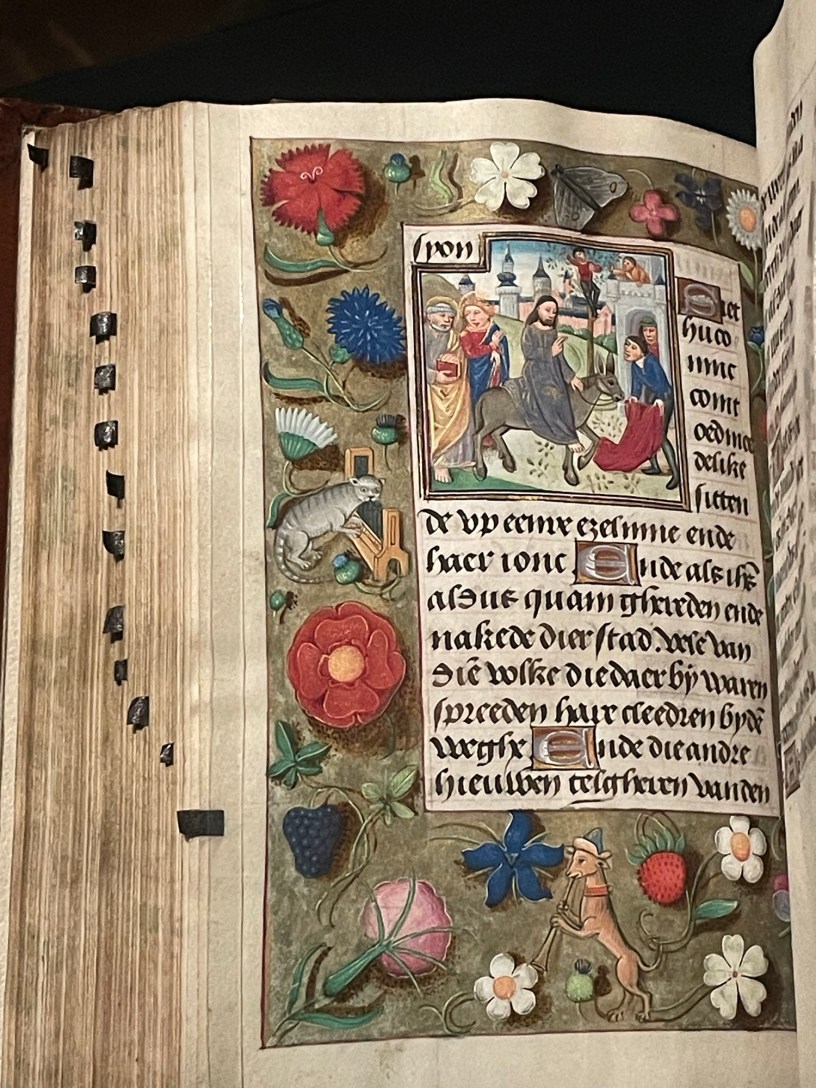 syon
Siet
hu co
ninc
comt
oedmoe
delike
sitten
de vp eenre ezelinne ende
haer ionc. Ende als ihs̄
aldus quam ghereden ende
nakede dier stad. vele van
diē volke die daer by waren
spreeden haer cleedren by dē
weghe. Ende die andre
hieuwen telgheren van den